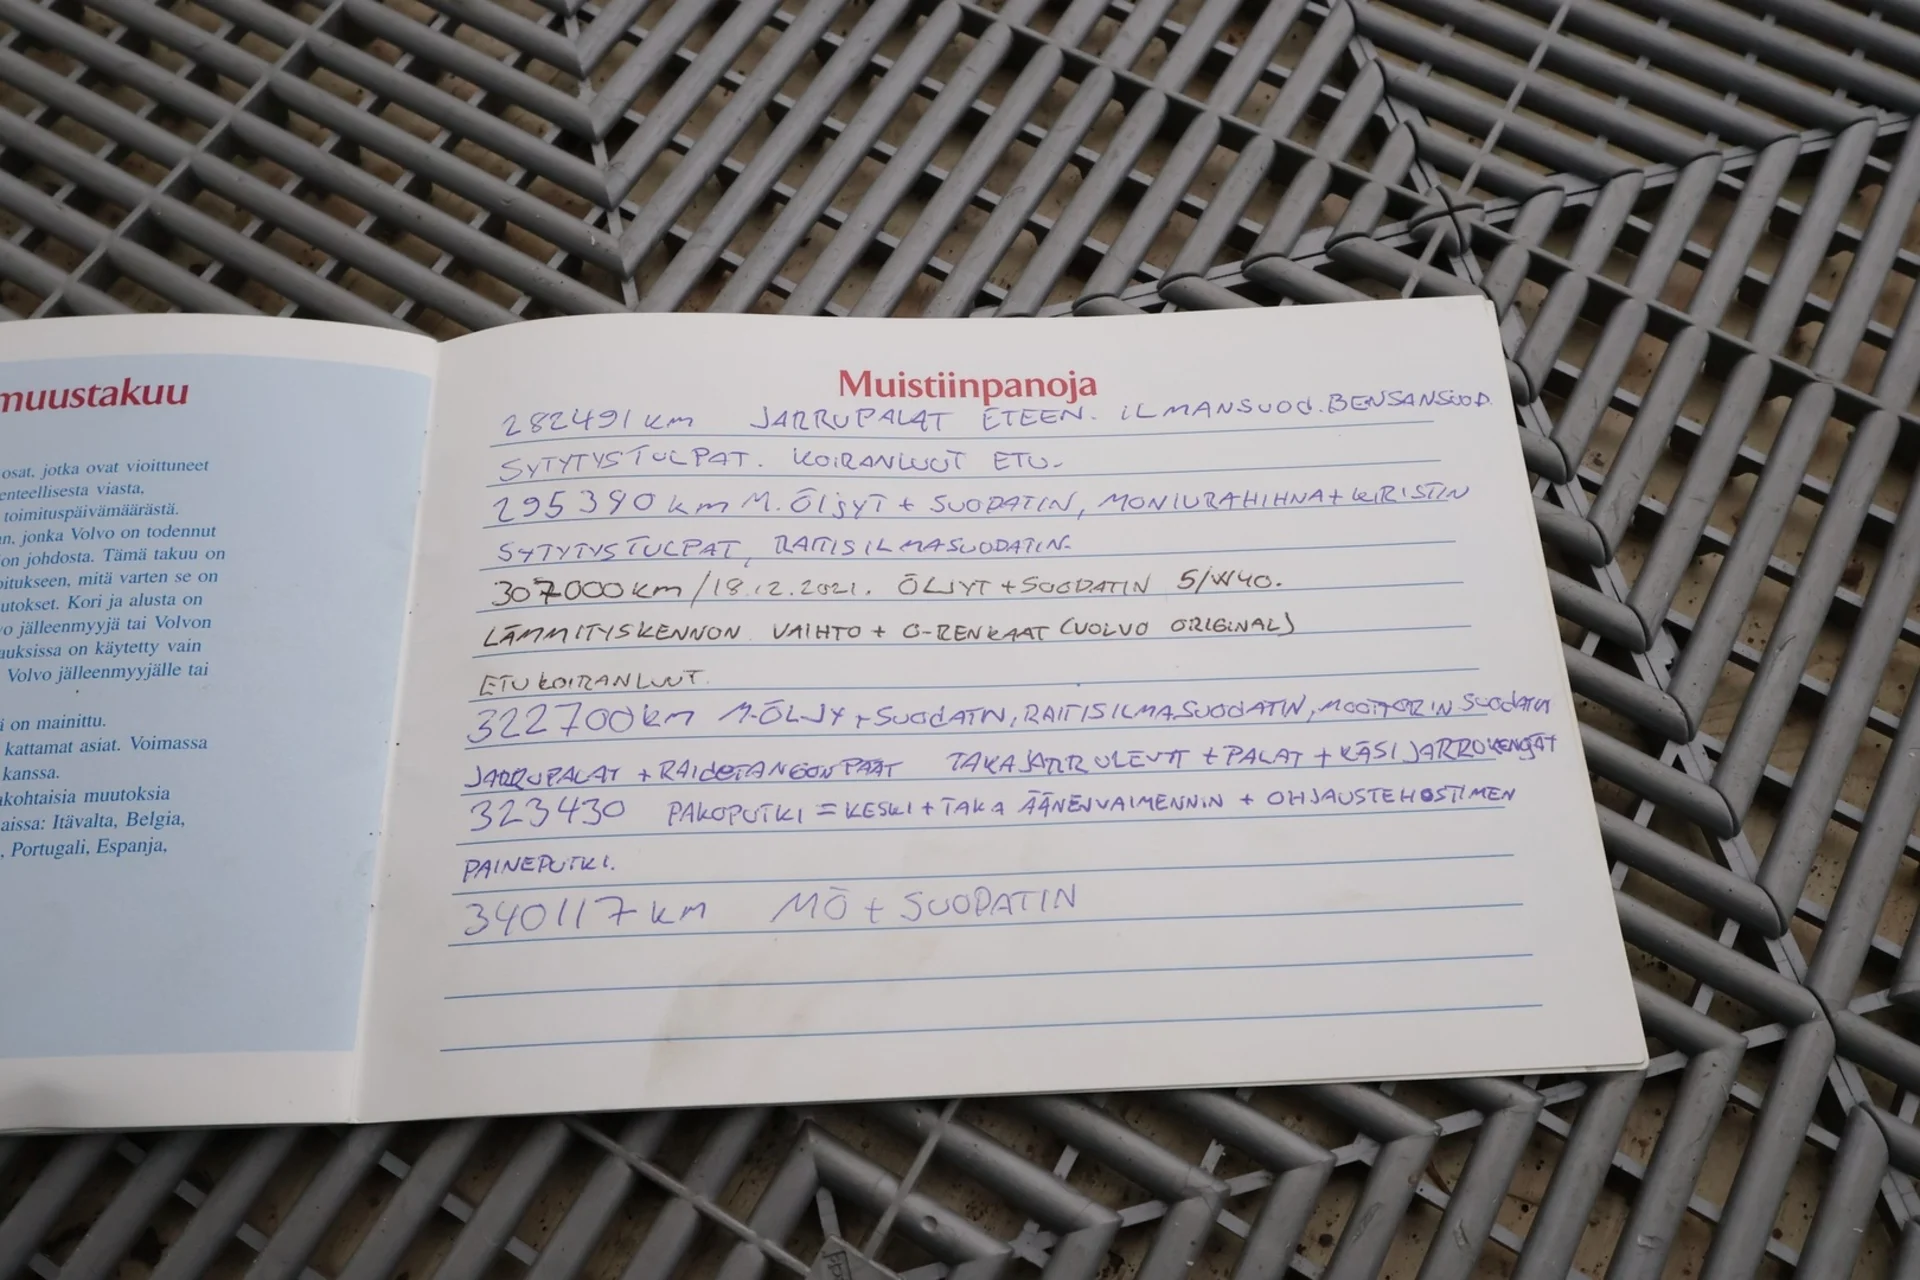 muustakuu
osat, jotka ovat vioittuneet
enteellisesta viasta,
toimituspäivämäärästä.
an, jonka Volvo on todennut
on johdosta. Tämä takuu on
oitukseen, mitä varten se on
utokset. Kori ja alusta on
vo jälleenmyyjä tai Volvon
auksissa on käytetty vain
Volvo jälleenmyyjälle tai
i on mainittu.
kattamat asiat. Voimassa
kanssa.
akohtaisia muutoksia
aissa: Itävalta, Belgia,
, Portugali, Espanja,
Muistiinpanoja
282491 km JARRUPALAT ETEEN. ILMANSUOD. BENSANSUOD.
SYTYTYSTULPAT. KOIRANLUUT ETU.
295390 km M. ÖLJYT + SUODATIN, MONIURAHIHNA + KIRISTIN
SYTYTYSTULPAT, RAITISILMASUODATIN.
307000 km / 18.12.2021. ÖLJYT + SUODATIN 5/W40.
LÄMMITYSKENNON VAIHTO + O-RENKAAT (VOLVO ORIGINAL)
ETU KOIRANLUUT.
322700 km M.ÖLJY + SUODATIN, RAITISILMASUODATIN, MOOTTORIN SUODATIN
JARRUPALAT + RAIDETANGONPÄÄT TAKAJARRULEVYT + PALAT + KÄSIJARRUKENGÄT
323430 PAKOPUTKI = KESKI + TAKA ÄÄNENVAIMENNIN + OHJAUSTEHOSTIMEN
PAINEPUTKI.
340117 km MÖ + SUODATIN